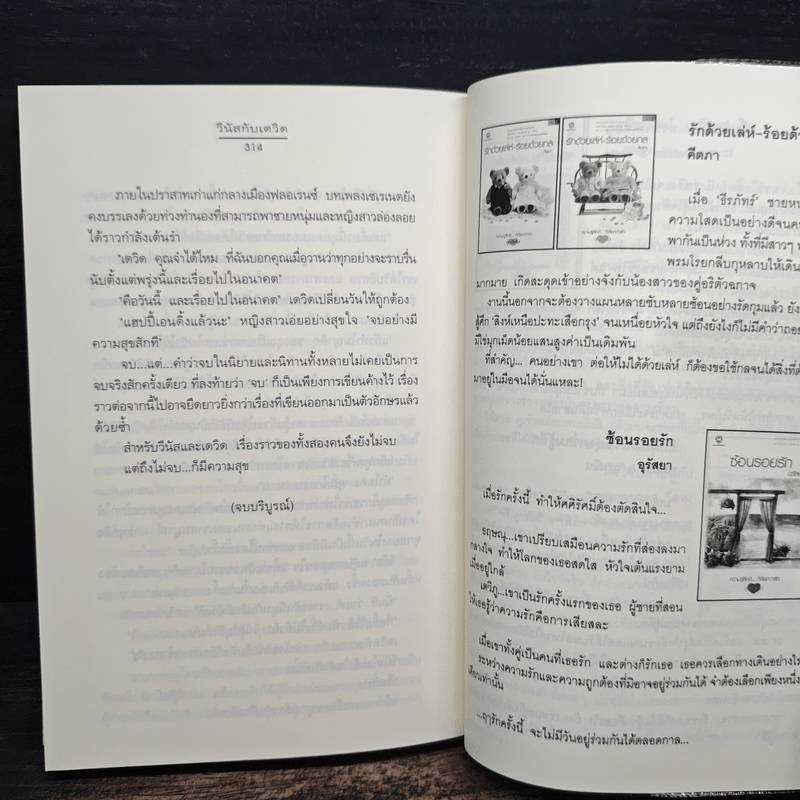 วีนัสกับเดวิด
314
ภายในปราสาทเก่าแก่กลางเมืองฟลอเรนซ์ บทเพลงเซเรเนดยัง
คงบรรเลงด้วยท่วงทำนองที่สามารถพาชายหนุ่มและหญิงสาวล่องลอย
ได้ราวกำลังเต้นรำ
"เดวิด คุณจำได้ไหม ที่ฉันบอกคุณเมื่อวานว่าทุกอย่างจะราบรื่น
นับตั้งแต่พรุ่งนี้และเรื่อยไปในอนาคต"
"คือวันนี้ และเรื่อยไปในอนาคต" เดวิดเปลี่ยนวันให้ถูกต้อง
"แฮปปี้เอนดิ้งแล้วนะ" หญิงสาวเอ่ยอย่างสุขใจ "จบอย่างมี
ความสุขสักที"
จบ...แต่...คำว่าจบในนิยายและนิทานทั้งหลายไม่เคยเป็นการ
จบจริงสักครั้งเดียว ที่ลงท้ายว่า 'จบ' ก็เป็นเพียงการเขียนค้างไว้ เรื่อง
ราวต่อจากนี้ไปอาจยืดยาวยิ่งกว่าเรื่องที่เขียนออกมาเป็นตัวอักษรแล้ว
ด้วยซ้ำ
สำหรับวีนัสและเดวิด เรื่องราวของทั้งสองคนจึงยังไม่จบ
แต่ถึงไม่จบ...ก็มีความสุข
(จบบริบูรณ์)
รักด้วยเล่ห์-ร้อยด้วยกล
รักด้วยเล่ห์-ร้อยด้วยกล
รักด้วยเล่ห์-ร้อยด้ว
คีตภา
เมื่อ 'ธีรภัทร์' ชายหน
ความโสดเป็นอย่างดีจนค
พากันเป็นห่วง ทั้งที่มีสาวๆ ห
พรมโรยกลีบกุหลาบให้เดิน
มากมาย เกิดสะดุดเข้าอย่างจังกับน้องสาวของคู่อริตัวฉกาจ
งานนี้นอกจากจะต้องวางแผนหลายซับหลายซ้อนอย่างรัดกุมแล้ว ยัง
สู้ศึก 'สิงห์เหนือปะทะเสือกรุง' จนเหนื่อยหัวใจ แต่ถึงยังไงก็ไม่มีคำว่าถอย
มีไข่มุกเม็ดน้อยแสนสูงค่าเป็นเดิมพัน
ที่สำคัญ... คนอย่างเขา ต่อให้ไม่ได้ด้วยเล่ห์ ก็ต้องขอใช้กลจนได้สิ่งที่ต้
มาอยู่ในมือจนได้นั่นแหละ!
ซ้อนรอยรัก
อุรัสยา
ซ้อนรอยรัก
เมื่อรักครั้งนี้ ทำให้ศศิรัศมิ์ต้องตัดสินใจ...
ธฤษณุ...เขาเปรียบเสมือนความรักที่ส่องลงมา
กลางใจ ทำให้โลกของเธอสดใส หัวใจเต้นแรงยาม
เมื่ออยู่ใกล้
เตวิภู...เขาเป็นรักครั้งแรกของเธอ ผู้ชายที่สอน
ให้เธอรู้ว่าความรักคือการเสียสละ
เมื่อเขาทั้งคู่เป็นคนที่เธอรัก และต่างก็รักเธอ เธอควรเลือกทางเดินอย่างไร
ระหว่างความรักและความถูกต้องที่มิอาจอยู่ร่วมกันได้ จำต้องเลือกเพียงหนึ่ง
เดียวเท่านั้น
...ฤๅรักครั้งนี้ จะไม่มีวันอยู่ร่วมกันได้ตลอดกาล...